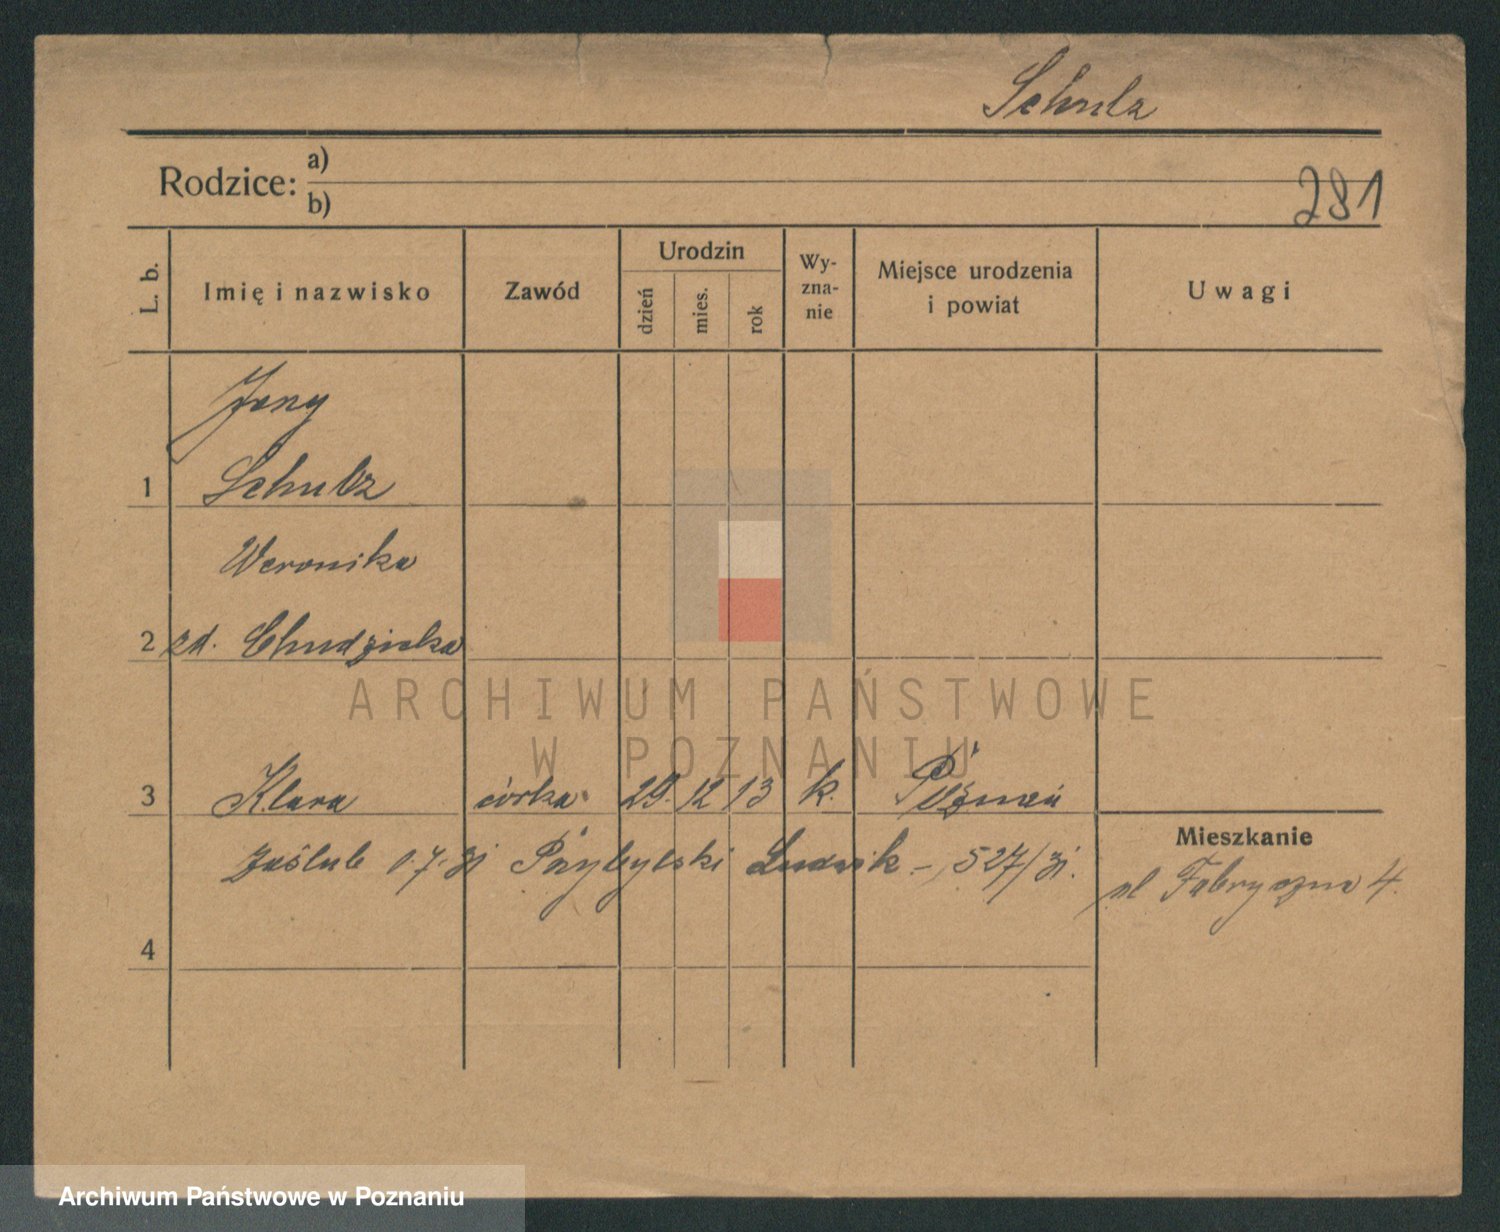 Schulz
Rodzice: a)
b)
281
L. b. Imię i nazwisko Zawód Urodzin dzień mies. rok Wy-zna-nie Miejsce urodzenia i powiat Uwagi
Jerzy
1 Schulz
Weronika
2 zd. Chudzicka
ARCHIWUM PAŃSTWOWE
W POZNANIU
3 Klara córka 29. 12 13 k. Poznań
Mieszkanie
Zaślub 1.7.31 Przybylski Ludwik – 527/31.
ul Fabryczna 4.
4
Archiwum Państwowe w Poznaniu